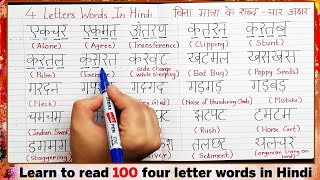 4 Letters Words In Hindi बिना मात्रा के शब्द - चार अक्षर
एकचर एकमत अंतरण कतरन करतब
(Alone) (Agree) (Transference) (Clipping) (Stunt)
करतल कसरत करवट खटमल खसखस
(Palm) Side Change (while sleeping) (Bed Bug) (Poppy Seeds)
गरदन गड़गड़ गड़बड़
(Neck) (Noise of thundering clouds) (Mistake)
चम झटपट टमटम
(Indian Sweet) (Rush) (Horse Cart)
डगमग तलछट थलचर
(Staggering)
Learn to read 100 four letter words in Hindi